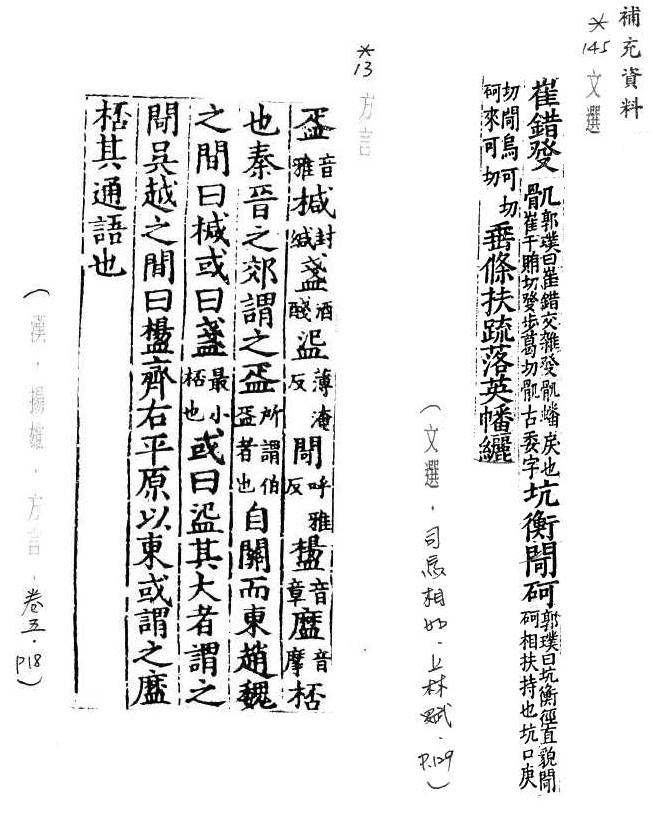 補充資料
*145 文選
崔錯發骩郭璞曰崔錯交雜發骩蟠戾也崔千賄切發步葛切骩古委字坑衡閜砢郭璞曰坑衡徑直貌閜砢相扶持也坑口庚
切閜烏可切砢來可切垂條扶疏落英幡纚
(文選.司馬相如.上林賦.P.129)
*13 方言
音雅椷封緘盞酒醆薄淹反閜呼雅反音章音摩桮
也秦晉之郊謂之所謂伯者也自關而東趙魏
之間曰椷或曰盞最小桮也或曰其大者謂之
閜吳越之間曰齊右平原以東或謂之
桮其通語也
(漢.揚雄.方言.卷五.P18)